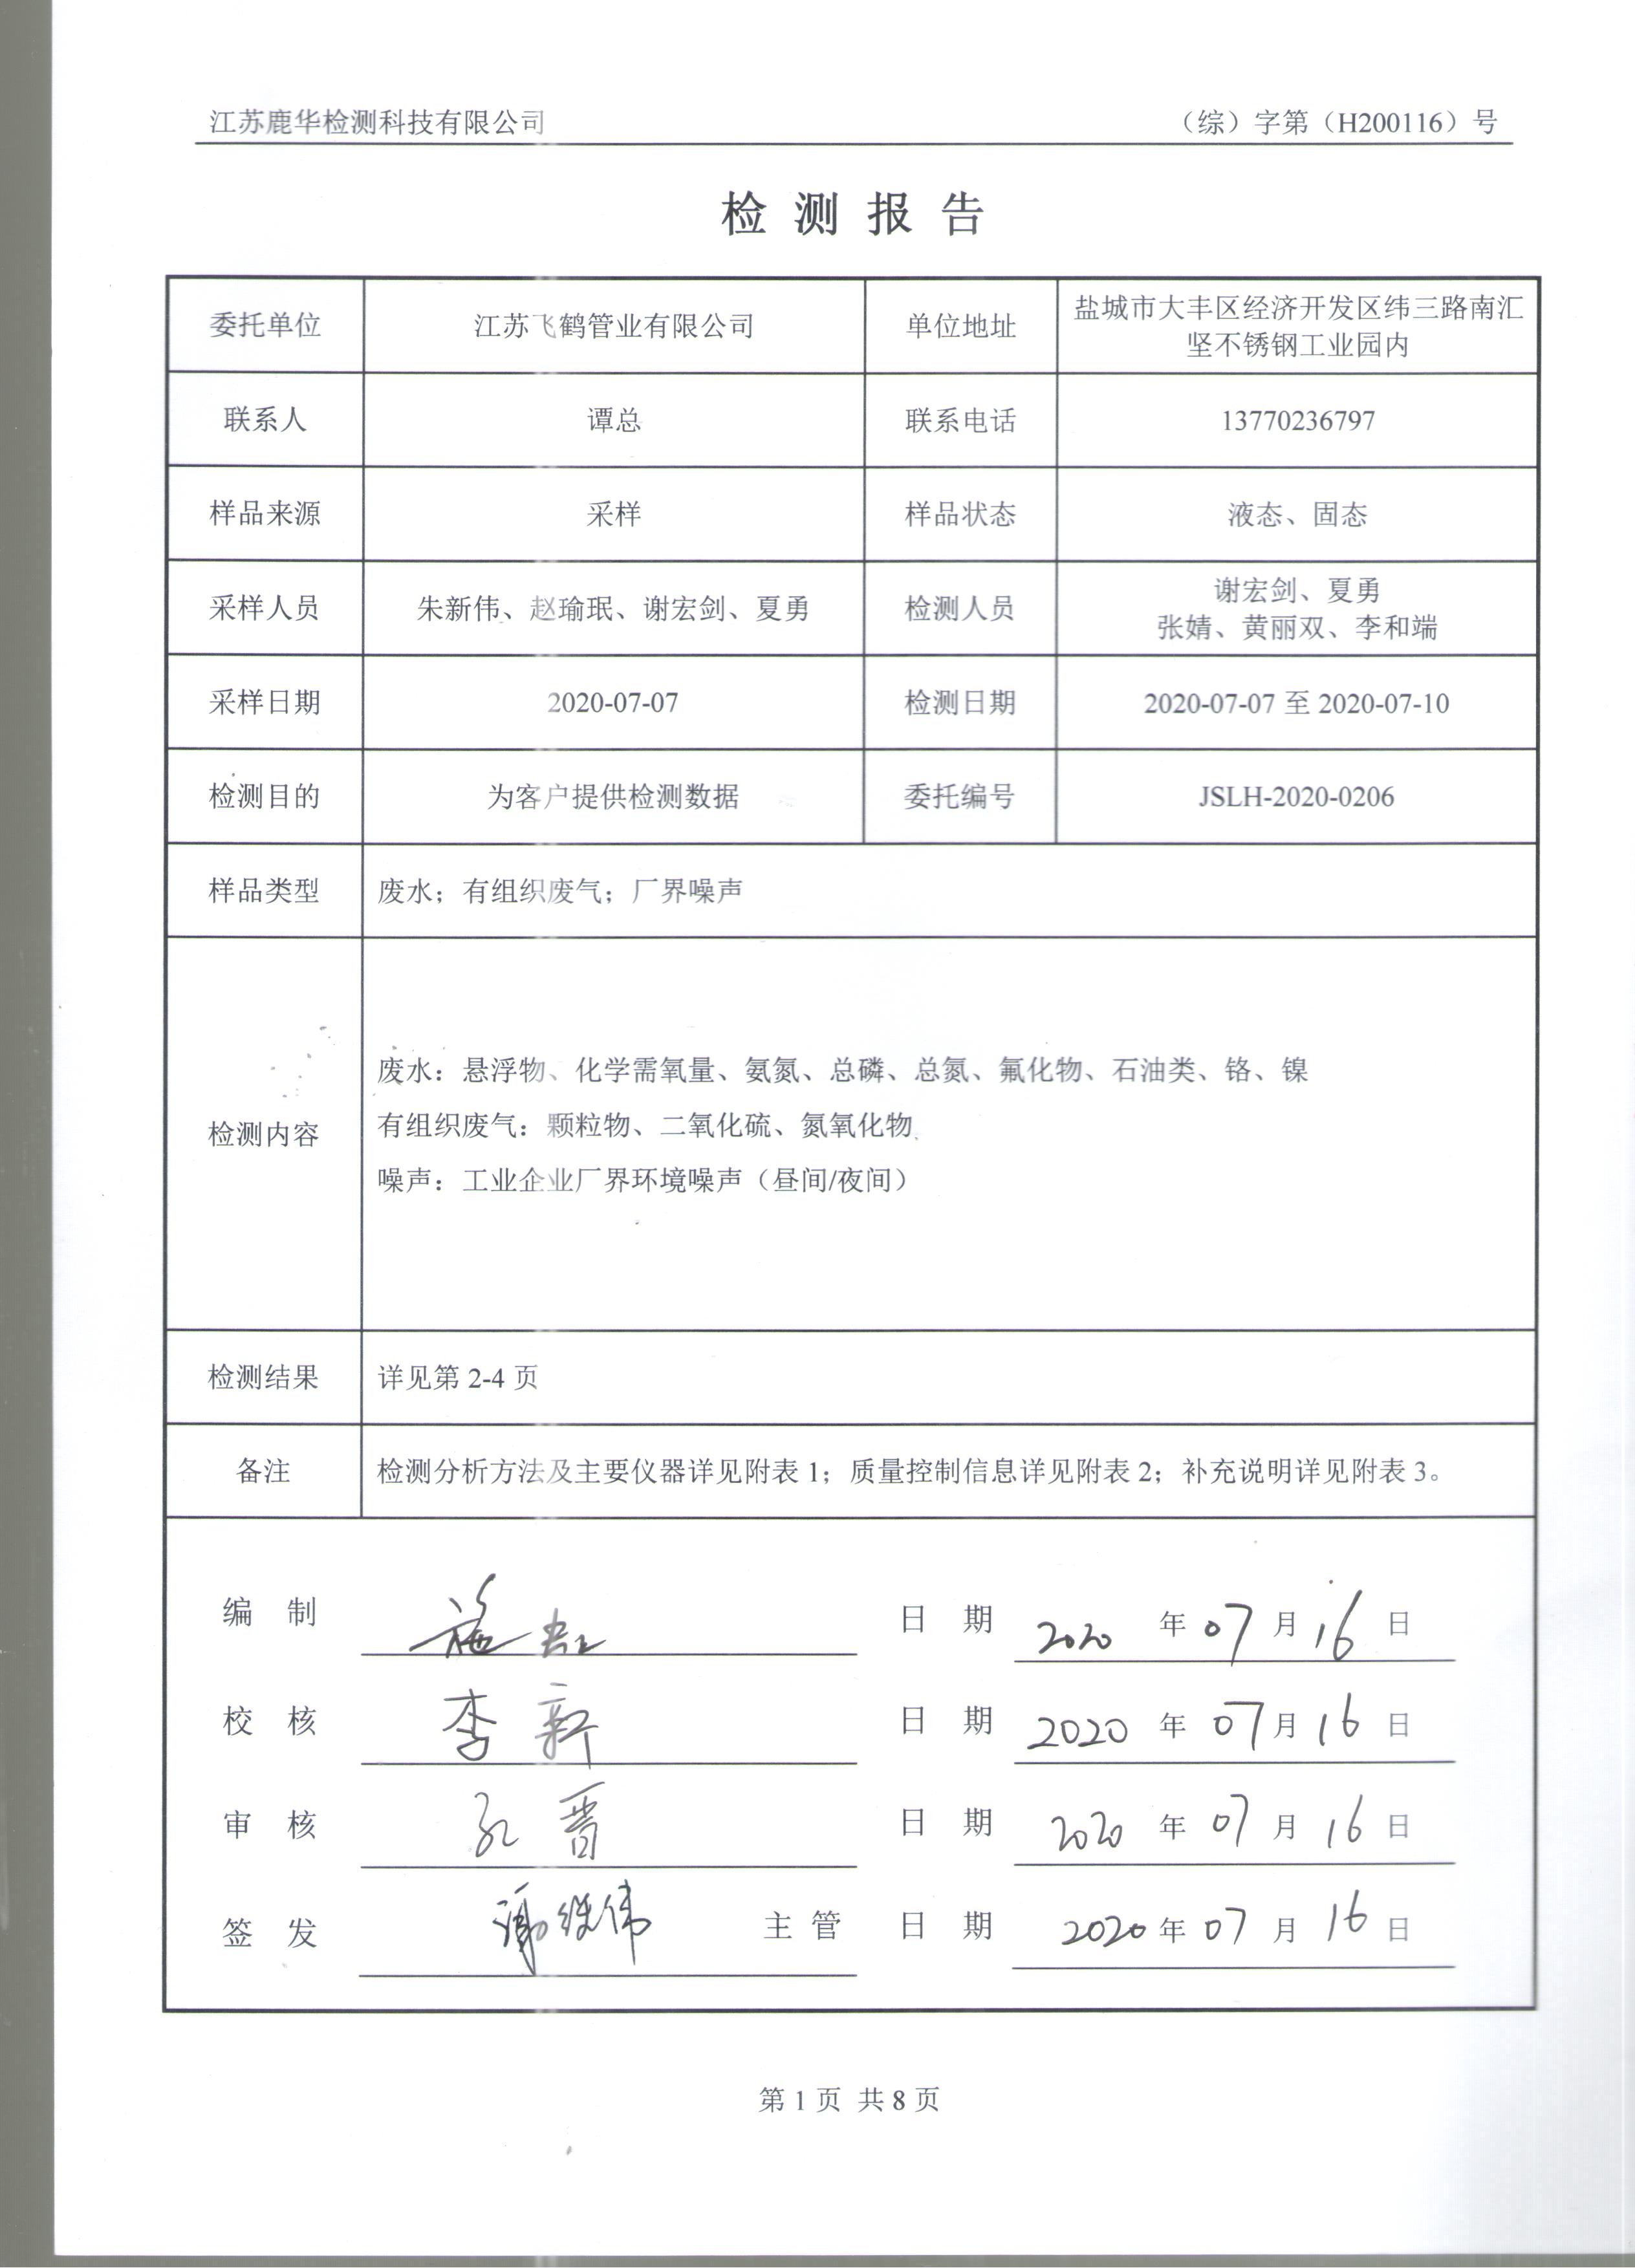 江苏鹿华检测科技有限公司 （综）字第（H200116）号
检测报告
委托单位 江苏飞鹤管业有限公司 单位地址 盐城市大丰区经济开发区纬三路南汇
坚不锈钢工业园内
联系人 谭总 联系电话 13770236797
样品来源 采样 样品状态 液态、固态
采样人员 朱新伟、赵瑜珉、谢宏剑、夏勇 检测人员 谢宏剑、夏勇
张婧、黄丽双、李和端
采样日期 2020-07-07 检测日期 2020-07-07 至 2020-07-10
检测目的 为客户提供检测数据 委托编号 JSLH-2020-0206
样品类型 废水；有组织废气；厂界噪声
检测内容
废水：悬浮物、化学需氧量、氨氮、总磷、总氮、氟化物、石油类、铬、镍
有组织废气：颗粒物、二氧化硫、氮氧化物
噪声：工业企业厂界环境噪声（昼间/夜间）
检测结果 详见第 2-4 页
备注 检测分析方法及主要仪器详见附表 1；质量控制信息详见附表 2；补充说明详见附表 3。
编 制 日 期 2020 年 07 月 16 日
校 核 李新 日 期 2020 年 07 月 16 日
审 核 孔晋 日 期 2020 年 07 月 16 日
签 发 主 管 日 期 2020 年 07 月 16 日
第 1 页 共 8 页